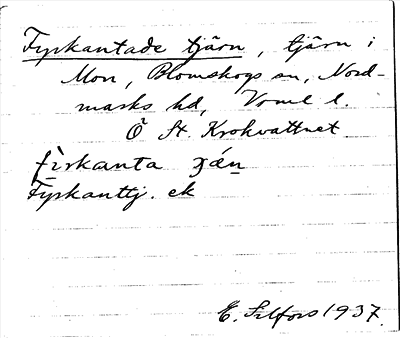 Fyrkantade tjärn, tjärn i
Mon, Blomskogs sn, Nord-
marks hd, Värml l.
Ö St. Krokvattnet
fìrkanta ɟǽn
Fyrkanttj. ek
E. Silfors 1937.